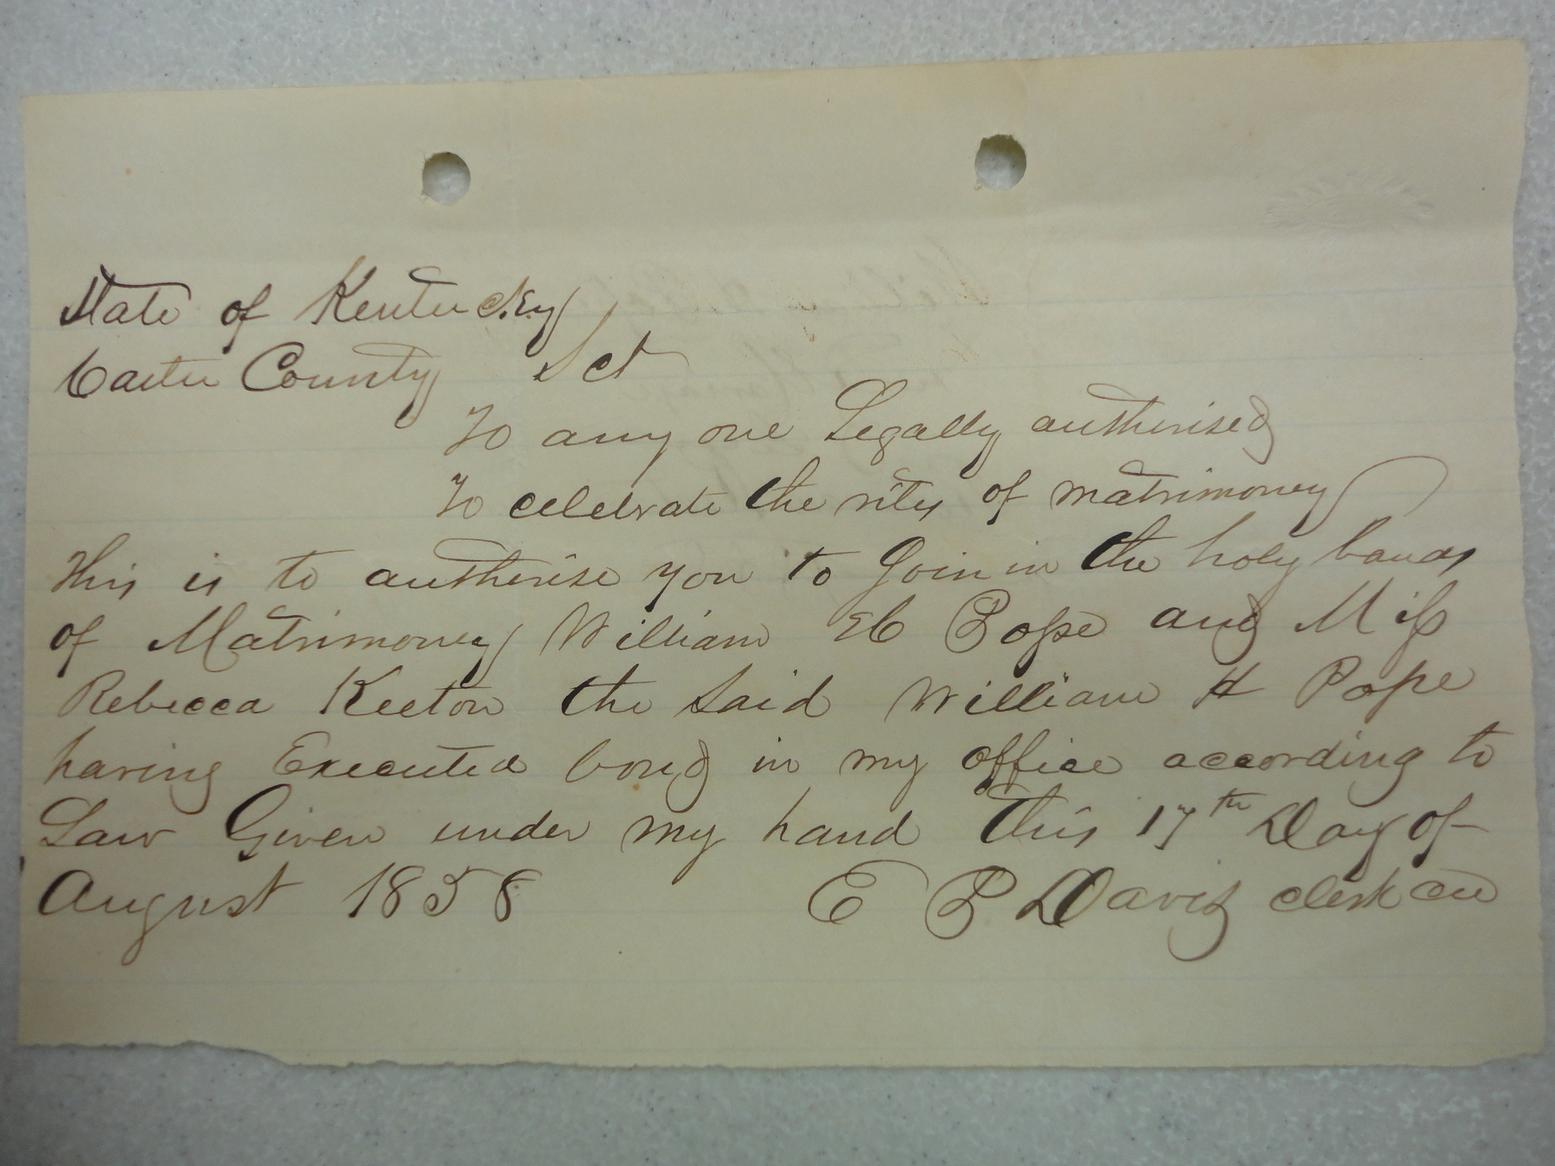 State of Kentuckey
Carter County Sct
To any one Legally autherised
To celebrate the rites of matrimoney
This is to autherise you to Join in the holy bands
of Matrimoney William H Pope and Miss
Rebecca Keeton the Said William H Pope
having Executed bond in my office according to
Law Given under my hand this 17th Day of
August 1858 E P Davis clerk